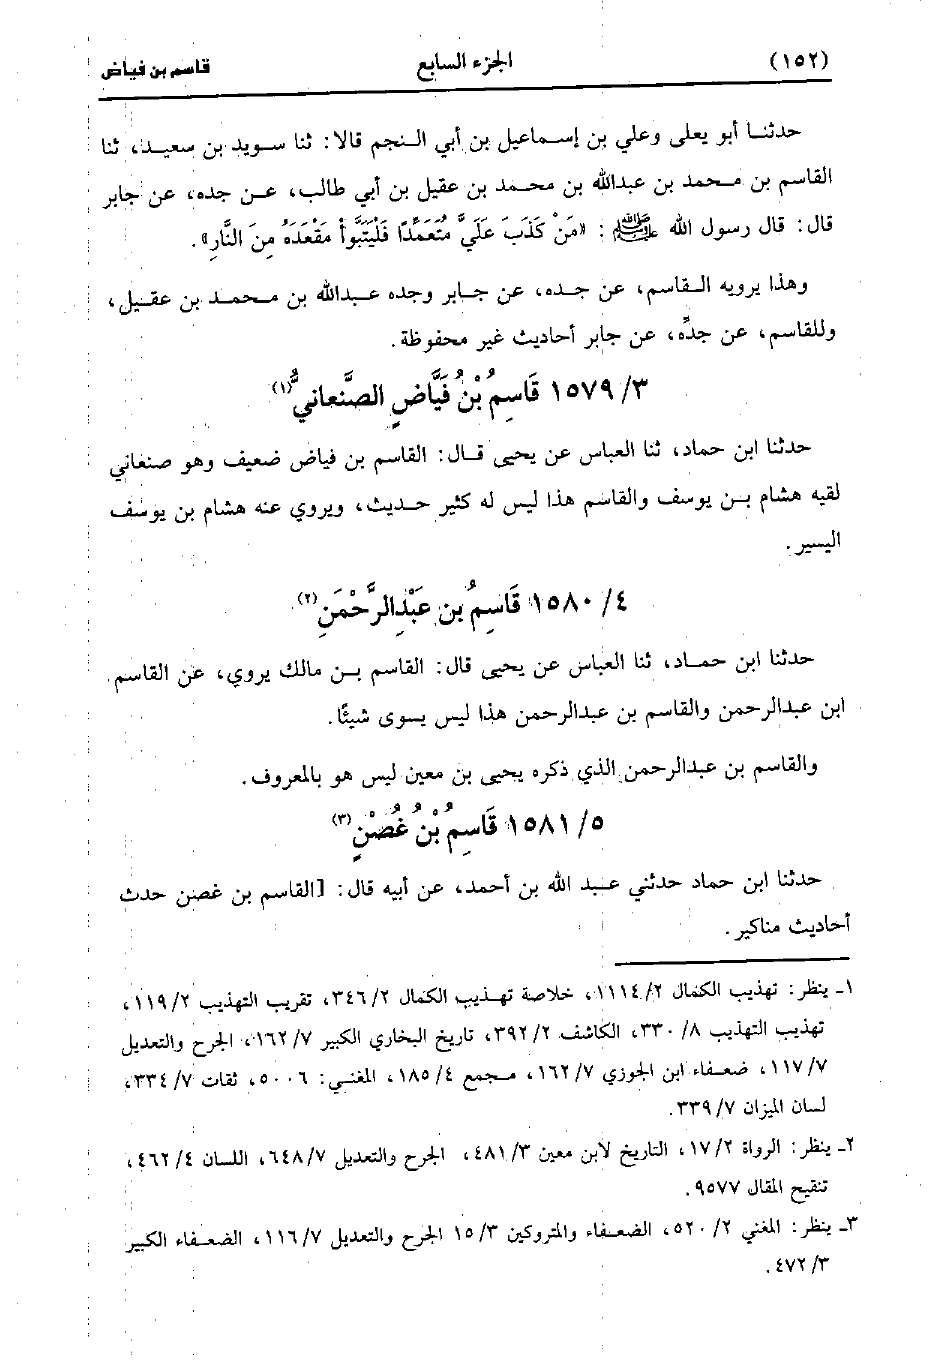 (١٥٢) الجزء السابع قاسم بن فياض
حدثنا أبو يعلى وعلي بن إسماعيل بن أبي النجم قالا: ثنا سويد بن سعيد، ثنا
القاسم بن محمد بن عبدالله بن محمد بن عقيل بن أبي طالب، عن جده، عن جابر
قال: قال رسول الله ﷺ: «مَنْ كَذَبَ عَلَيَّ مُتَعَمِّدًا فَلْيَتَبَوَّأْ مَقْعَدَهُ مِنَ النَّارِ».
وهذا يرويه القاسم، عن جده، عن جابر وجده عبدالله بن محمد بن عقيل،
وللقاسم، عن جدِّه، عن جابر أحاديث غير محفوظة.
٣/ ١٥٧٩ قَاسِمُ بْنُ فَيَّاضٍ الصَّنعانيُّ(١)
حدثنا ابن حماد، ثنا العباس عن يحيى قال: القاسم بن فياض ضعيف وهو صنعاني
لقيه هشام بن يوسف والقاسم هذا ليس له كثير حديث، ويروي عنه هشام بن يوسف
اليسير.
٤/ ١٥٨٠ قَاسِمُ بن عَبْدِالرَّحْمَنِ(٢)
حدثنا ابن حماد، ثنا العباس عن يحيى قال: القاسم بن مالك يروي، عن القاسم
ابن عبدالرحمن والقاسم بن عبدالرحمن هذا ليس يسوى شيئًا.
والقاسم بن عبدالرحمن الذي ذكره يحيى بن معين ليس هو بالمعروف.
٥/ ١٥٨١ قَاسِمُ بْنُ غُصْنٍ(٣)
حدثنا ابن حماد حدثني عبد الله بن أحمد، عن أبيه قال: [القاسم بن غصن حدث
أحاديث مناكير.
١ـ ينظر: تهذيب الكمال ١١١٤/٢، خلاصة تهذيب الكمال ٣٤٦/٢، تقريب التهذيب ١١٩/٢،
تهذيب التهذيب ٣٣٠/٨، الكاشف ٣٩٢/٢، تاريخ البخاري الكبير ١٦٢/٧، الجرح والتعديل
١١٧/٧، ضعفاء ابن الجوزي ١٦٢/٧، مجمع ١٨٥/٤، المغني: ٥٠٠٦، ثقات ٣٣٤/٧،
لسان الميزان ٣٣٩/٧.
٢ـ ينظر: الرواة ١٧/٢، التاريخ لابن معين ٤٨١/٣، الجرح والتعديل ٦٤٨/٧، اللسان ٤٦٢/٤،
تنقيح المقال ٩٥٧٧.
٣ـ ينظر: المغني ٥٢٠/٢، الضعفاء والمتروكين ١٥/٣ الجرح والتعديل ١١٦/٧، الضعفاء الكبير
٤٧٢/٣.